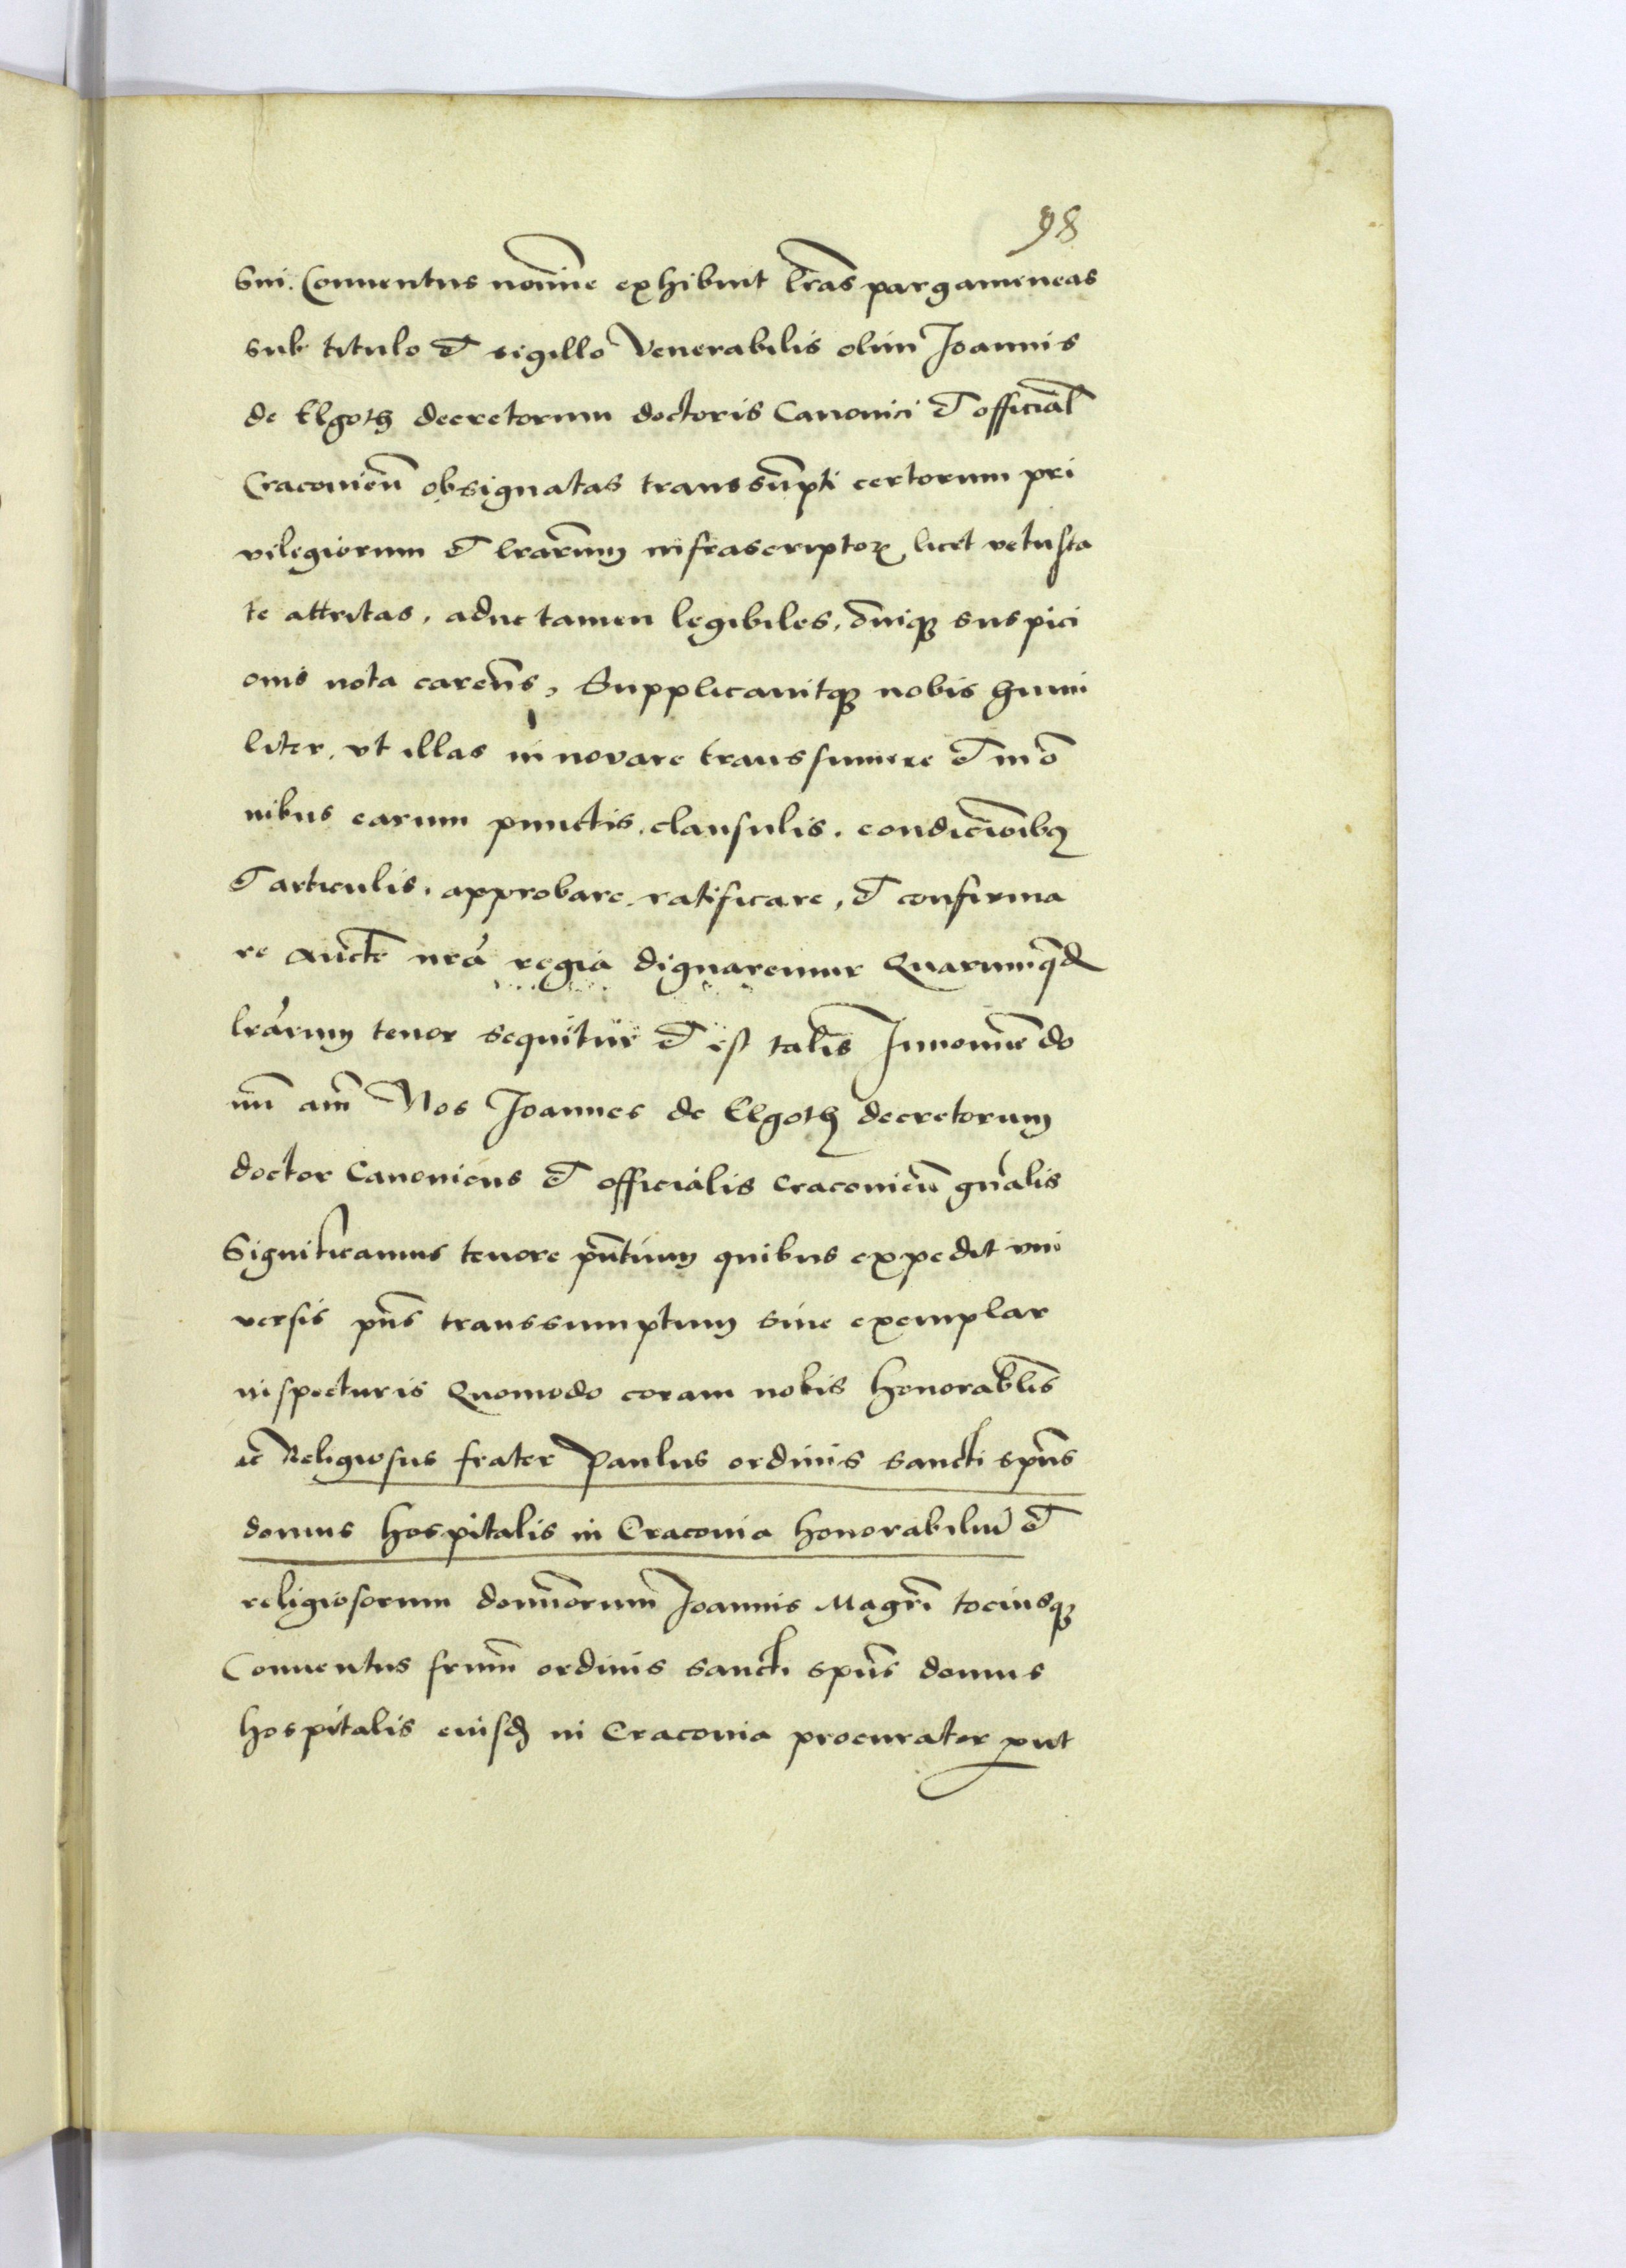 98
Sui. Conuentus noīe exhibuit lr̄as pargameneas
sub titulo et sigillo Venerabilis olim Joannis
de Elgoth decretorum doctoris Canonici et official̄
Cracouien̄ obsignatas transsūpti certorum pri
vilegiorum et lr̄arum infrascriptoꝝ licet vetusta
te attritas, aduc tamen legibiles, om̄iqꝫ suspici
onis nota caren̄s, Supplicauitqꝫ nobis humi
liter, vt illas innovare transsumere et in o̅
nibus earum punctis, clausulis, condicioībꝫ
et articulis, approbare, ratificare, et confirma
re aucte nr̄a regia dignaremur Quarumqd̄
lr̄arum tenor sequitur et est talis In nomine do
mī am̄ Nos Joannes de Elgoth decretorum
doctor Canonicus et officialis Cracouien̄ gn̄alis
Significamus tenore pn̄tium quibus expedit vni
versis pn̄s transsumptum siue exemplar
inspecturis Quomodo coram nobis honorabl̄is
ac Religiosus frater Paulus ordinis sancti spūs
domus hospitalis in Cracouia honorabiliū et
religiosorum domīorum Joannis Magr̄i tociusqꝫ
Conuentus frūm ordinis sancti spūs domus
hospitalis eiusd̄ in Cracouia procurator ꝓut